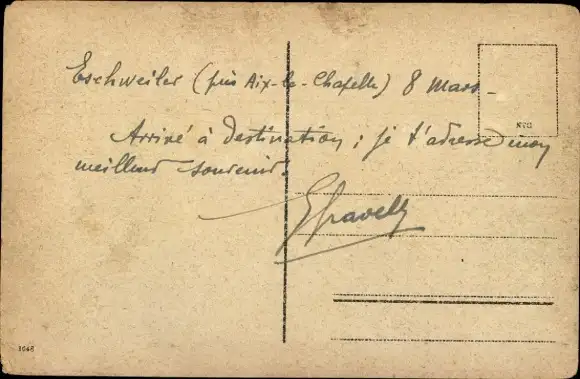 Eschweiler (près Aix-la-Chapelle) 8 Mars -
Arrivé à destination ; je t'adresse mon
meilleur souvenir.
1646